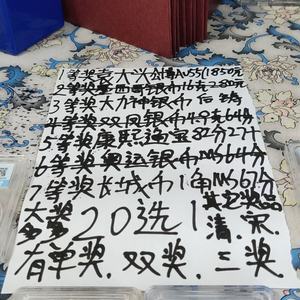 1等奖袁大头公博AU55(1850元
2等奖墨西哥银币16克280元
3等奖大力神银币后铸
4等奖双凤银币49克64分
5等奖康熙通宝82分27十
6等奖奥运银币MS64分
7等奖长城币1角MS67分
大奖多多 20选1 其它奖品清.宋.
有单奖.双奖.三奖